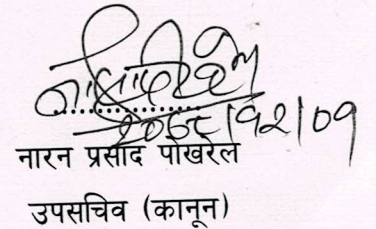 २०७८|१२|०१
नारन प्रसाद पोखरेल
उपसचिव (कानून)